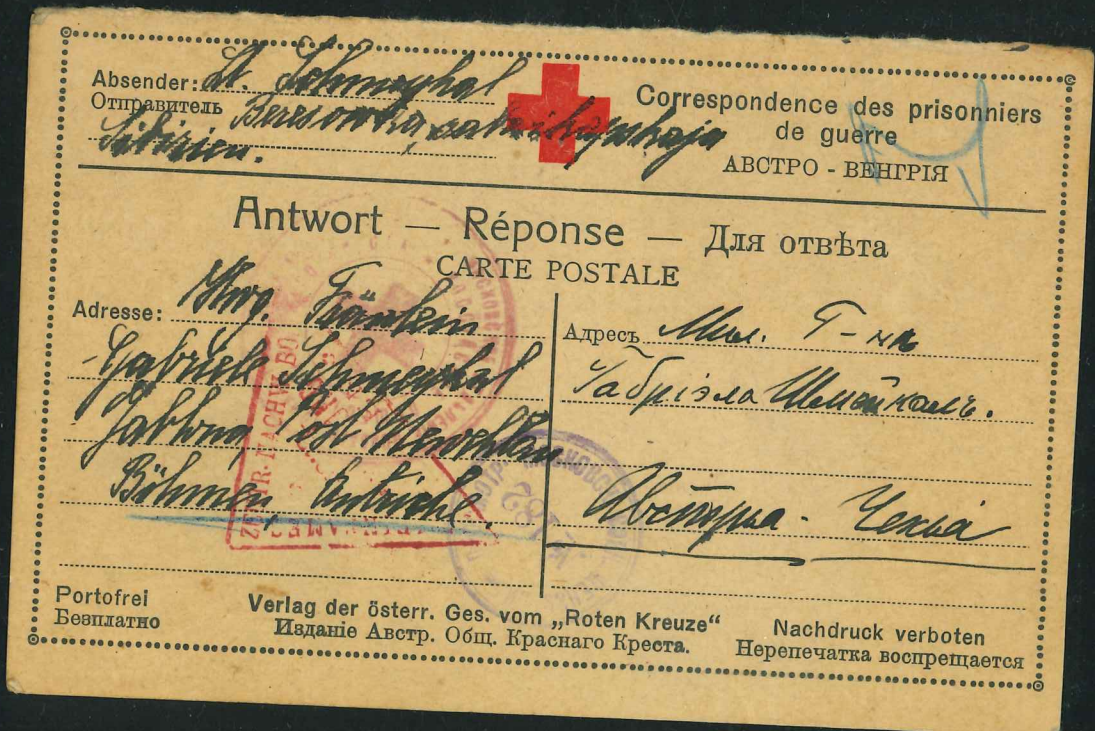 Absender: Lt. Schmeykal
Отправитель Beresowka, sabaikalskaja
Sibirien.
Correspondence des prisonniers
de guerre
АВСТРО - ВЕНГРІЯ
Antwort — Réponse — Для отвѣта
CARTE POSTALE
Adresse: Fräulein
Gabriele Schmeykal
Post
Böhmen, Autriche.
Адресъ Г-на
Габріэла Шмейкалъ.
Австрія - Чехія
Portofrei
Безплатно
Verlag der österr. Ges. vom „Roten Kreuze“
Изданіе Австр. Общ. Краснаго Креста.
Nachdruck verboten
Нерепечатка воспрещается